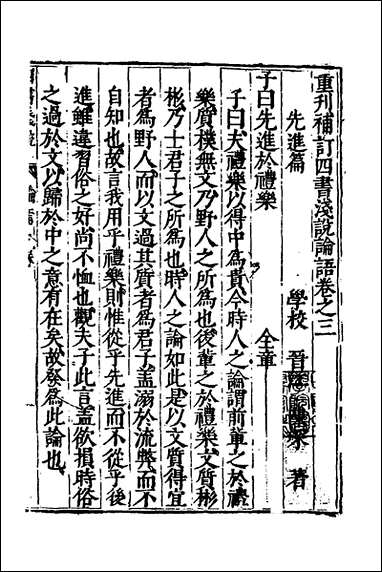 重刊補訂四書淺說論語卷之三
先進篇 學校 晉 著
子曰先進於禮樂 全章
子曰夫禮樂以得中為貴今時人之論謂前輩之於禮
樂質樸無文乃野人之所為也後輩之於禮樂文質彬
彬乃士君子之所為也時人之論如此是以文質得宜
者為野人而以文過其質者為君子蓋溺於流弊而不
自知也故言我用乎禮樂則惟從乎先進而不從乎後
進雖違習俗之好尚不恤也觀夫子此言蓋欲損時俗
之過於文以歸於中之意有在矣故發為此論也